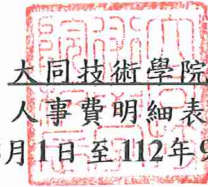 大同技術學院
人事費明細表
月1日至112年9